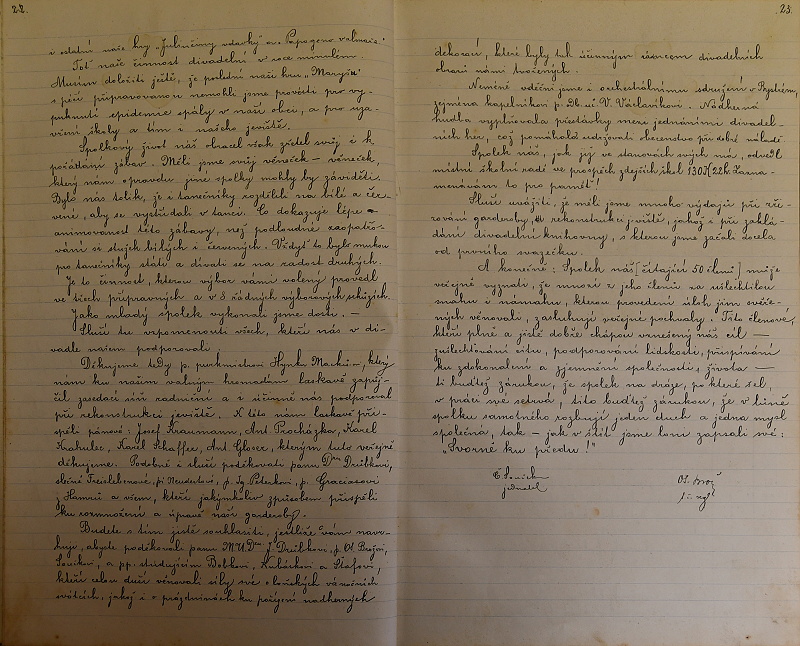 22.
i ostatní naše hry „Julinčiny vdavky" a „Papageno valnaie"
Toť naše činnost divadelní v roce minulém.
Musím doložiti ještě, že poslední naši hru „Maryša"
s péčí připravovanou nemohli jsme provésti pro vy-
puknutí epidemie spály v naší obci, a pro uza-
vření školy a tím i našeho jeviště.
Spolkový život náš obracel však zřetel svůj i k
pořádání zábav. Měli jsme svůj věneček – věneček,
který nám opravdu jiné spolky mohly by záviděti.
Bylo nás tolik, že i tanečníky rozdělili na bílé a čer-
vené, aby se vystřídali v tanci. Co dokazuje lépe
animovanost této zábavy, než podloudné zaopatřo-
vání si stužek bílých i červených. Vždyť to bylo mukou
po tanečníky státi a dívati se na radost druhých.
Je to činnost, kterou výbor vámi volený provedl
ve třech přípravných a v 8 řádných výborových schůzích.
Jako mladý spolek vykonali jsme dosti. –
Sluší tu vzpomenouti všech, kteří nás v di-
vadle našem podporovali.
Děkujeme tedy p. purkmistrovi Hynku Macků –, který
nám ku našim valným hromadám laskavě zapůj-
čil zasedací síň radniční a i účinně nás podporoval
při rekonstrukci jeviště. K této nám laskavě při-
spěli pánové: Josef Krausmann, Ant. Procházka, Karel
Krahulec, Karel Schaffer, Ant. Gloser, kterým tuto veřejně
děkujeme. Podobně i sluší poděkovati panu Dru Drŭbkovi,
slečně Treislebenové, pí Neudertové, p. Peterkovi, p. Graciasovi
z Hamrů a všem, kteří jakýmkoliv způsobem přispěli
ku rozmnožení a úpravě naší garderoby.
Budete s tím jistě souhlasiti, jestliže vám navr-
huji, abyste poděkovali panu MUDru J. Drŭbkovi, p. Ol. Brožovi,
Součkovi, a pp. studujícím Bobkovi, Kubíkovi a Štafovi,
kteří celou duší věnovali síly své o loňských vánočních
svátcích, jakož i o prázdninách ku pořízení nádherných
23.
dekorací, které byly tak účinným rámcem divadelních
obrazů námi tvořených.
Neméně vděčni jsme i orchestrálnímu sdružení v Bystrém,
zejména kapelníkovi p. odb. uč. V. Václavíkovi. Nádherná
hudba vyplňovala přestávky mezi jednáními divadel-
ních her, což pomáhalo udržovati obecenstvo při dobré náladě.
Spolek náš, jak již ve stanovách svých má, odvedl
místní školní radě ve prospěch zdejších škol 130 K 22 h. Zazna-
menávám to pro paměť!
Sluší uvážiti, že měli jsme mnoho výdajů při zři-
zování garderoby, rekonstrukci jeviště, jakož i při zaklá-
dání divadelní knihovny, s kterou jsme začali docela
od prvního svazečku.
A konečně: Spolek náš [čítající 50 členů] může
veřejně vyznati, že mnozí z jeho členů za ušlechtilou
snahu i námahu, kterou provedení úloh jim svěře-
ných věnovali, zasluhují veřejné pochvaly. Tito členové,
kteří plně a jistě dobře chápou vznešený náš cíl –
zušlechťování citu, podporování lidskosti, přispívání
ku zdokonalení a zjemnění společnosti, života –
ti buďtež zárukou, že spolek na dráze, po které šel,
v práci své setrvá, tito buďtež zárukou, že v lůně
spolku samotného rozhojní jeden duch a jedna mysl
společná, tak – jak v štít jsme loni zapsali své:
„Svorně ku předu!"
E. Souček
jednatel
Ol. Brož